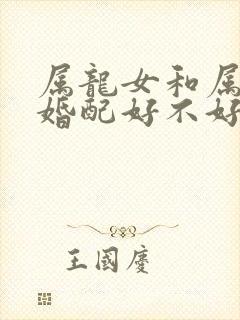 属龍女和属
婚配好不好
王國慶